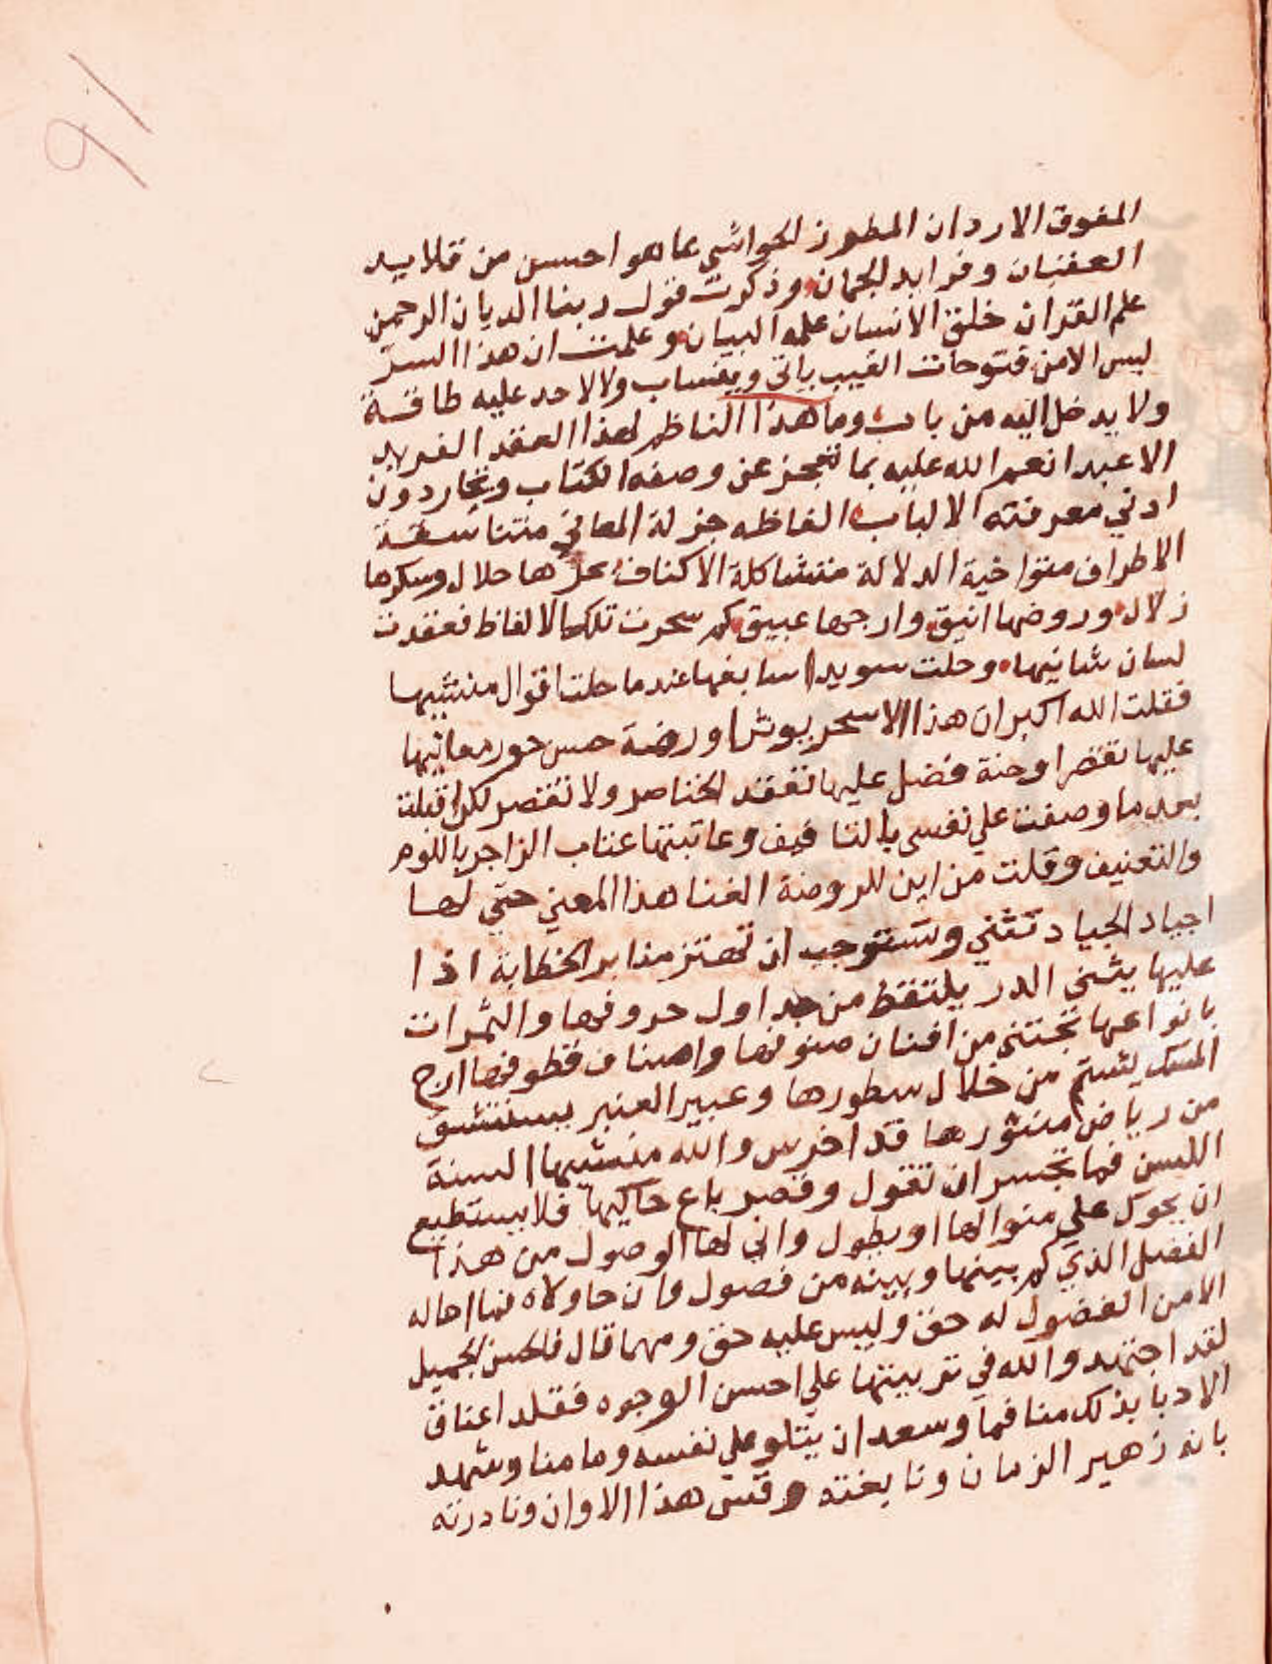 ٩١
المفوق الاردان المطرز الحواشي عا هو احسن من قلايد
العقيان وفرايد الجمان وذكرت قول ربنا الديان الرحمن
علم القران خلق الانسان علمه البيان وعلمت ان هذا السر
ليس الا من فتوحات الغيب ياتي وينساب ولا لاحد عليه طاقة
ولا يدخل اليه من باب وما هذا الناظم لهذا العقد الفريد
الا عبد انعم الله عليه بما تعجز عن وصفه الكتاب وتحار دون
ادني معرفته الالباب الفاظه جزلة المعاني متناسقة
الاطراف متواخية الدلالة متشاكلة الاكناف حلال وسكرها
زلال وروضها انيق وارجها عبيق كم سحرت تلك الالفاظ فعقدت
لسان شانيها وحلت سويدا سابغها عندما حلت اقوال منشيها
فقلت الله اكبر ان هذا الا سحر يوثر اوروضة حسن حور معانيها
عليها تقصر اوجنة فضل عليها تعقد الخناصر ولا تقتصر لكن اقبلت
بعد ما وصفت علي نفسي بالتافيف وعاتبتها عتاب الزاجر باللوم
والتعنيف وقلت من اين للروضة الغنا هذا المعني حتي لها
اجياد الجياد تثني وتستوجب ان تهتز منابر الخطابة اذا
عليها يثني الدر يلتقط من جداول حروفها والثمرات
بانواعها تجتني من افنان صنوفها واصناف قطوفها ارج
المسك يشتم من خلال سطورها وعبير العنبر يستنشق
من رياض منثورها قد اخرس والله منشيها السنة
اللسن فما تجسر ان تقول وقصر باع حاكيها فلا يستطيع
ان يحوك علي منوالها او يطول واني لها الوصول من هذا
الفضل الذي كم بينها وبينه من فصول وان حاولاه فما احاله
الا من الفضول له حق وليس عليه حق ومهما قال فالحسن الجميل
لقد اجتهد والله في تربيتها علي احسن الوجوه فقلد اعناق
الادبا بذلك منا فما وسعه ان يتلو علي نفسه وما منا وشهد
بانه زهير الزمان ونابغته وقس هذا الاوان ونادرته